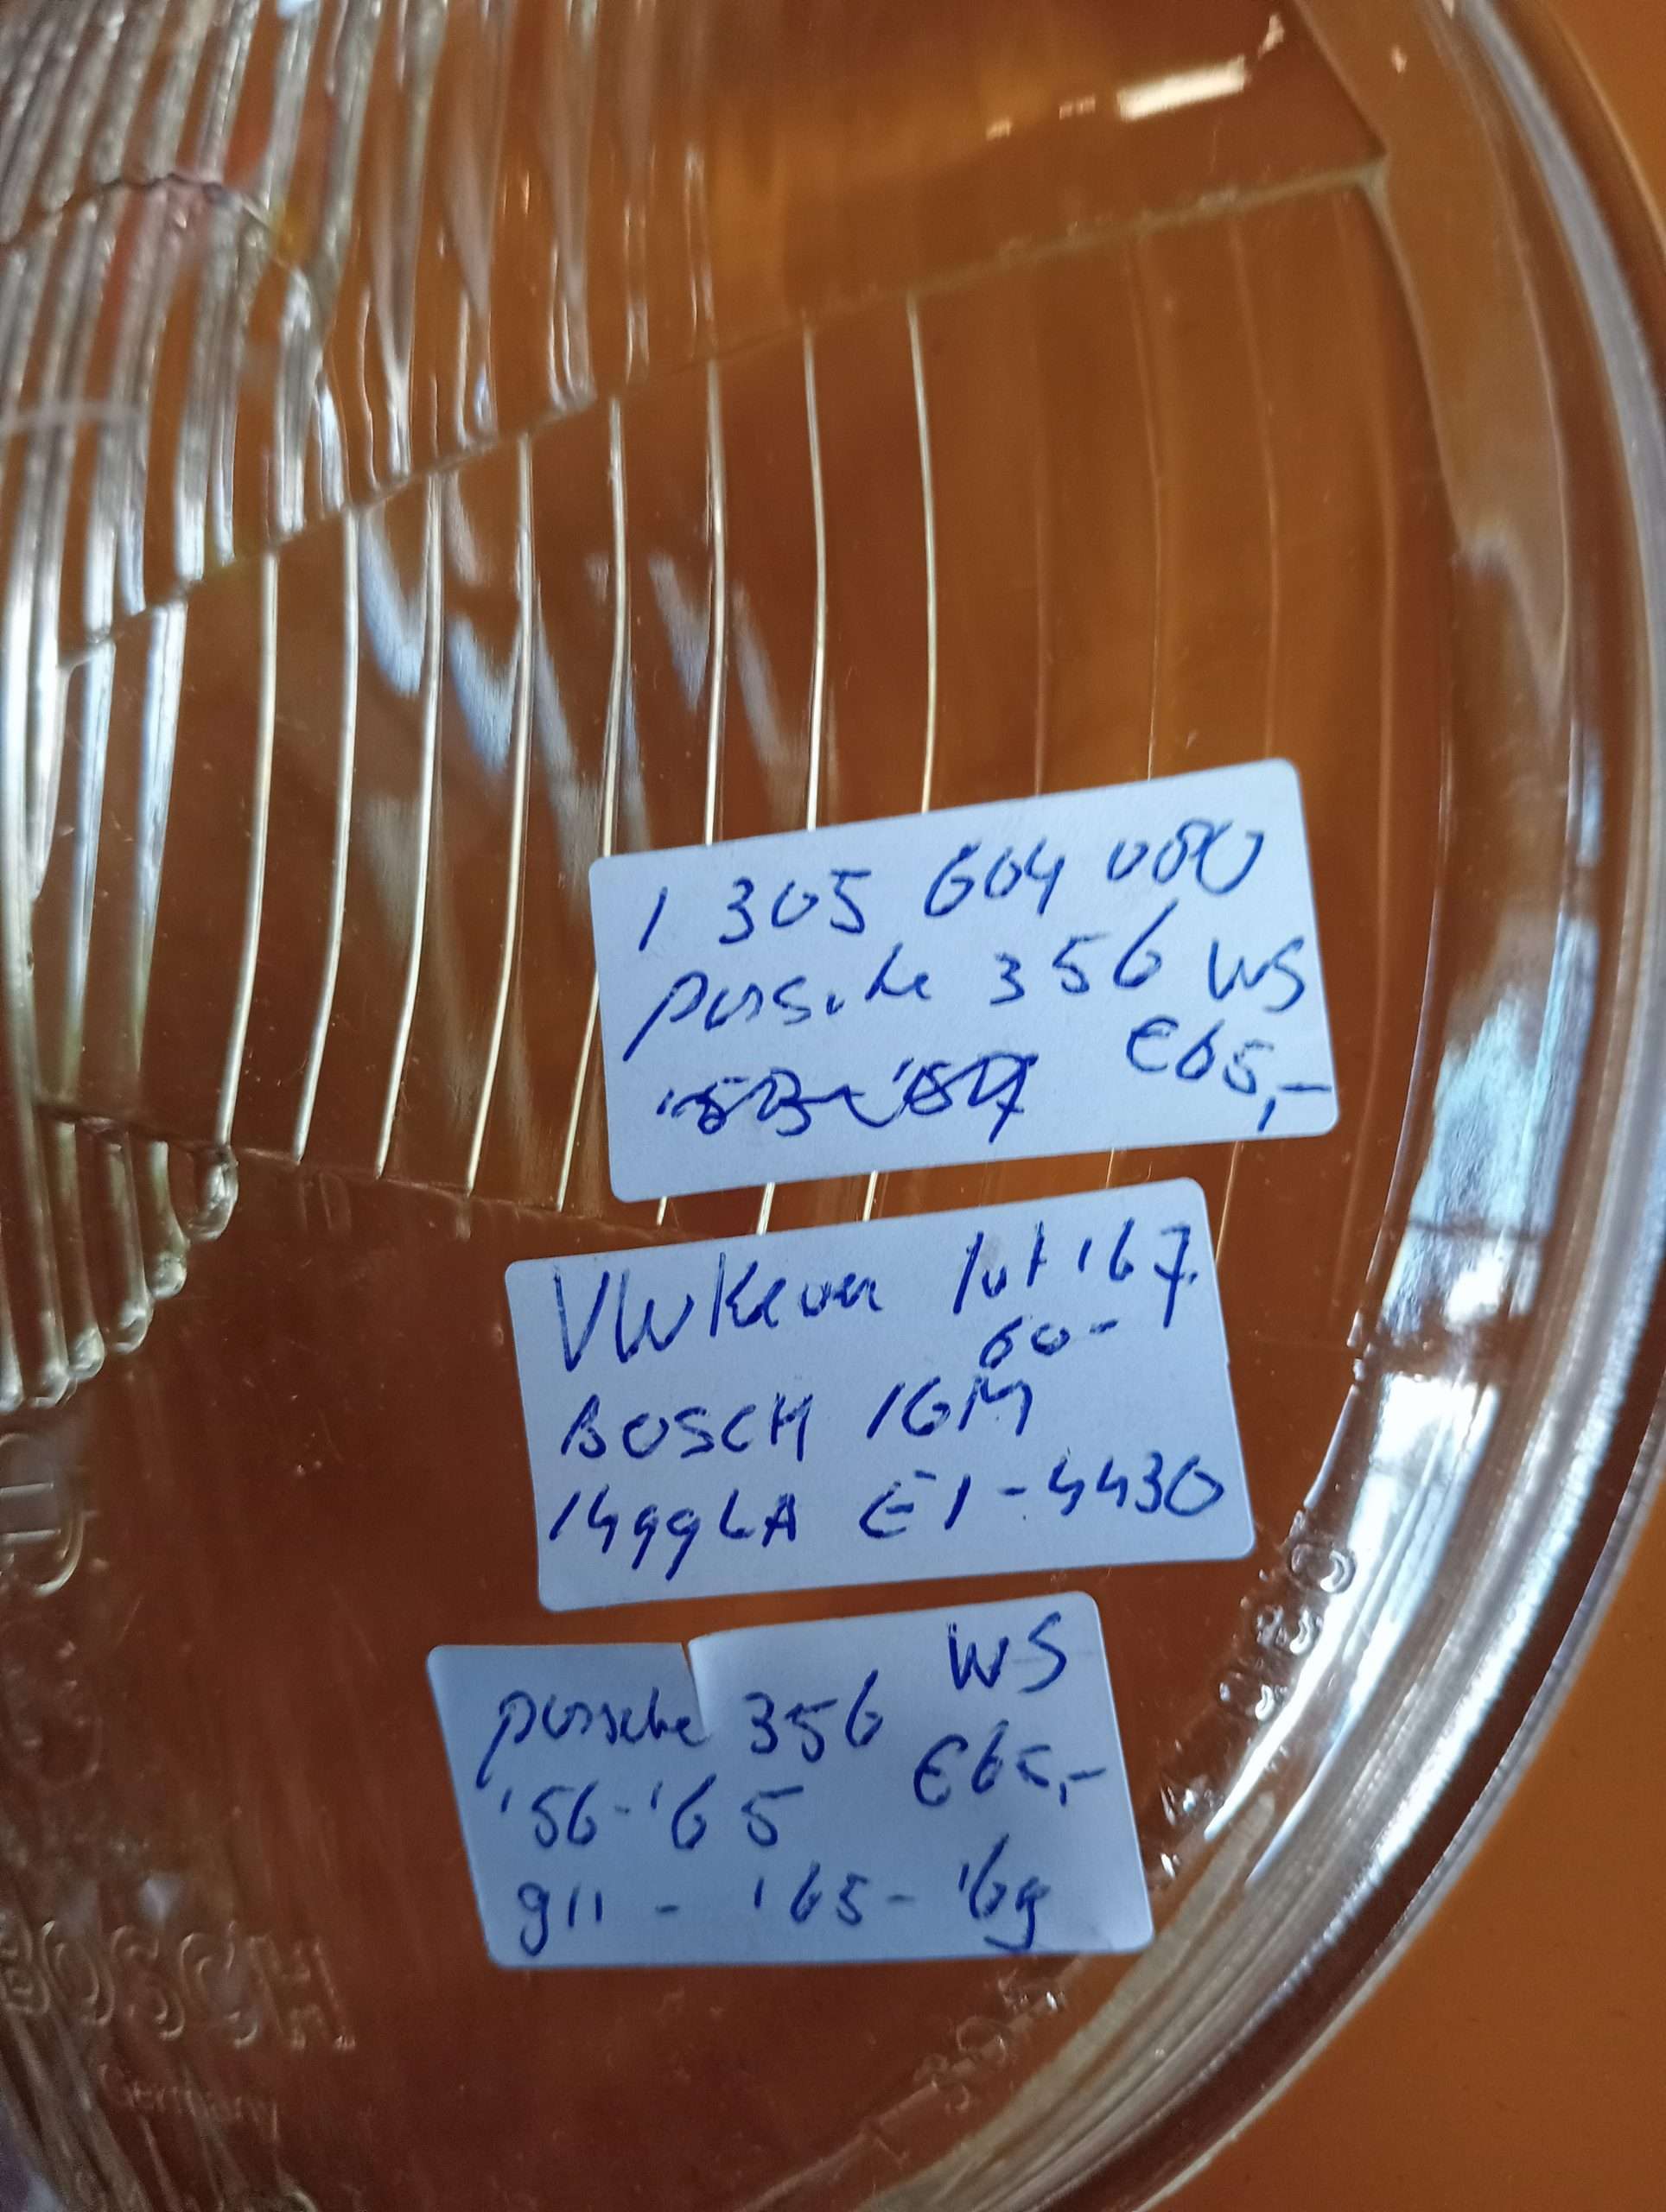 1 305 604 080
porsche 356 WS
€65,-
VW Kever tot '67
60-
BOSCH IGM
1499LA E1-4430
porsche 356 WS
'56-'65 €65,-
911 - '65-'69
BOSCH
Germany